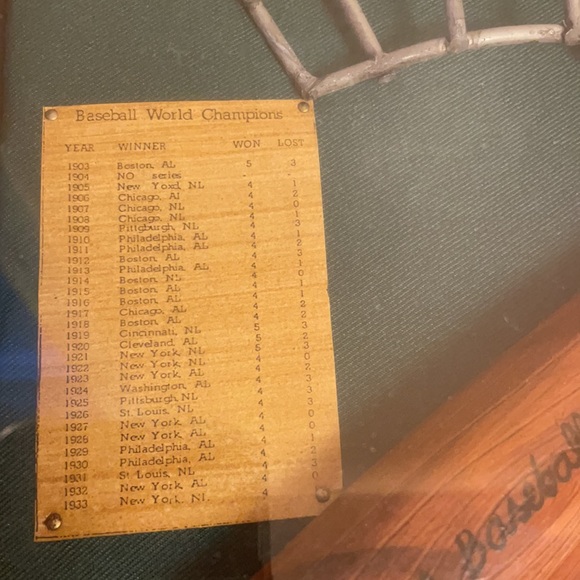 Baseball World Champions
YEAR WINNER WON LOST
1903 Boston, AL 5 3
1904 NO series - -
1905 New Yord, NL 4 1
1906 Chicago, Al 4 2
1907 Chicago, NL 4 0
1908 Chicago, NL 4 1
1909 Pittgburgh, NL 4 3
1910 Philadelphia, AL 4 1
1911 Philadelphia, AL 4 2
1912 Boston, AL 4 3
1913 Philadelphia, AL 4 1
1914 Boston, NL 4 0
1915 Boston, AL 4 1
1916 Boston, AL 4 1
1917 Chicago, AL 4 2
1918 Boston, AL 4 2
1919 Cincinnati, NL 5 3
1920 Cleveland, AL 5 2
1921 New York, NL 5 3
1922 New York, NL 4 0
1923 New York, AL 4 2
1924 Washington, AL 4 3
1925 Pittsburgh, NL 4 3
1926 St. Louis, NL 4 3
1927 New York, AL 4 0
1928 New York, AL 4 0
1929 Philadelphia, AL 4 1
1930 Philadelphia, AL 4 2
1931 St Louis, NL 4 3
1932 New York, AL 4 0
1933 New York, NL 4
Baseball